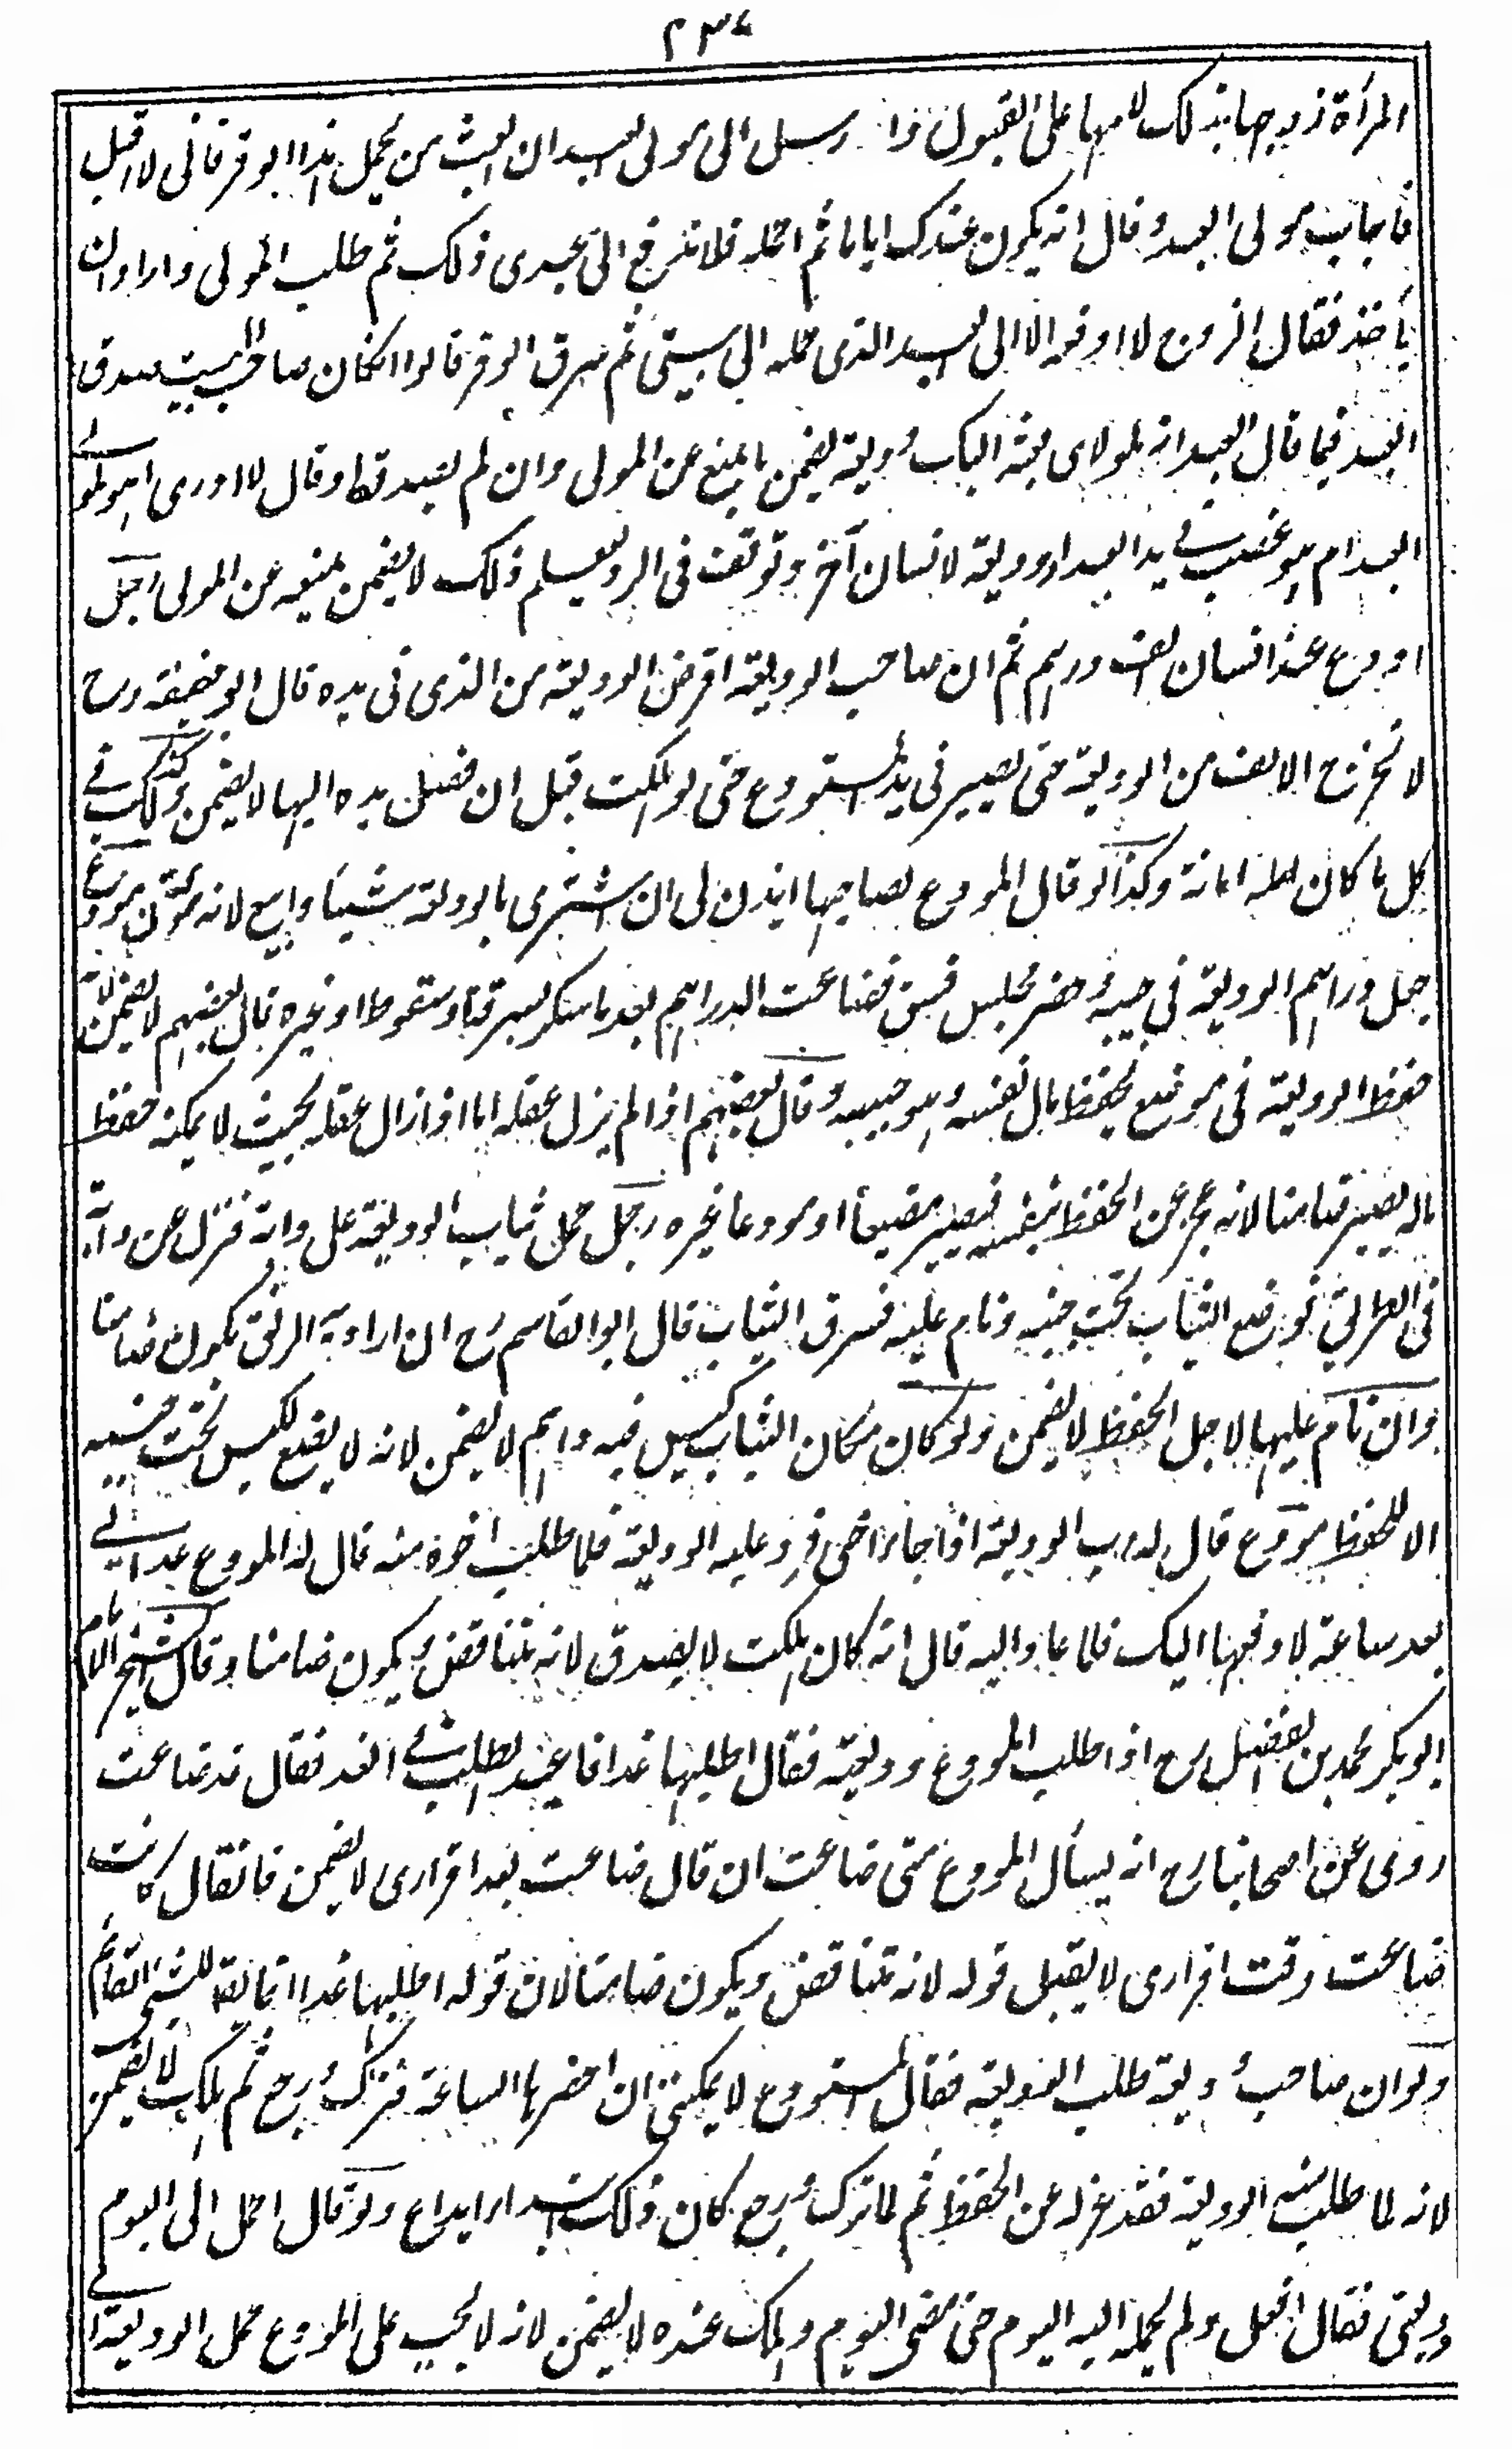 ٢٣٤
المرأة زوجها بذلك لامها على القبول وا رسل الى مولى العبد ان ابعث من يحمل هذا الوقر فانى لا اقبل
فاجابت مولى العبد وقال انه يكون عندك اياما ثم احمله فلا تدفع الى عبدى ذلك ثم طلب المولى واراد ان
يأخذ فقال الزوج لا ادفعه الا الى العبد الذى حمله الى بيتى ثم سرق الوقر قالوا ان كان صاحب البيت صدق
العبد فيما قال العبد انه لمولاى بعثه اليك وديعة يضمن بالمنع عن المولى وان لم يصدقه او قال لا ادرى اهو لمولى
العبد ام هو غصب فى يد العبد او وديعة لانسان آخر وتوقف فى الرد ليعلم ذلك لا يضمن بمنعه عن المولى رجل
اودع عند انسان الف درهم ثم ان صاحب الوديعة اقرض الوديعة من الذى فى يده قال ابو حنيفة رح
لا تخرج الالف من الوديعة حتى يصير فى يد المستودع حتى لو هلكت قبل ان تصل يده اليها لا يضمن وكذلك فى
كل ما كان اصله امانة وكذا لو قال المودع لصاحبها ائذن لى ان اشترى بالوديعة شيئا وابيع لانه مؤتمن مودع
جعل دراهم الوديعة فى جيبه وحضر مجلس فسق فضاعت الدراهم بعد ما سكر بسرقة او سقوط او غيره قال بعضهم لا يضمن لانه
حفظ الوديعة فى موضع يحفظ مال نفسه وهو جيبه وقال بعضهم اذا لم يزل عقله اما اذا زال عقله بحيث لا يمكنه حفظ
ماله يصير ضامنا لانه عجز عن الحفظ بنفسه فيصير مضيعا او مودعا غيره رجل حمل ثياب الوديعة على دابة فنزل عن دابته
فى الطريق فوضع الثياب تحت جنبه ونام عليه فسرق الثياب قال ابو القاسم رح ان اراد به الرفق يكون ضامنا
وان نام عليها لاجل الحفظ لا يضمن ولو كان مكان الثياب كيس فيه دراهم لا يضمن لانه لا يضع الكيس تحت جنبه
الا للحفظ مودع قال له رب الوديعة اذا جاء اخى فرد عليه الوديعة فلما طلب اخوه منه قال له المودع عد الى
بعد ساعة لادفعها اليك فلما عاد اليه قال انه كان هلكت لا يصدق لانه تناقض ويكون ضامنا وقال الشيخ الامام
ابو بكر محمد بن الفضل رح اذا طلب المودع وديعته فقال اطلبها غدا فاعيد الطلب فى الغد فقال قد ضاعت
روى عن اصحابنا رح انه يسأل المودع متى ضاعت ان قال ضاعت بعد اقرارى لا يضمن فان قال كانت
ضاعت وقت اقرارى لا يقبل قوله لانه تناقض ويكون ضامنا لان قوله اطلبها غدا انما يقال للشىء القائم
ولو ان صاحب وديعة طلب الوديعة فقال المستودع لا يمكننى ان احضرها الساعة فترك ورجع ثم هلكت لا يضمن
لانه لما طلب منه الوديعة فقد عزله عن الحفظ ثم لما ترك ورجع كان ذلك ابتداء ايداع ولو قال احمل الى اليوم
وديعتى فقال افعل ولم يحمله اليه اليوم حتى مضى اليوم وهلك عنده لا يضمن لانه لا يجب على المودع حمل الوديعة ا